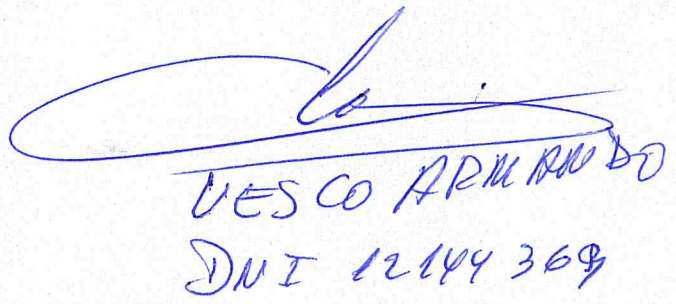 VESCO ARMANDO
DNI 12144369